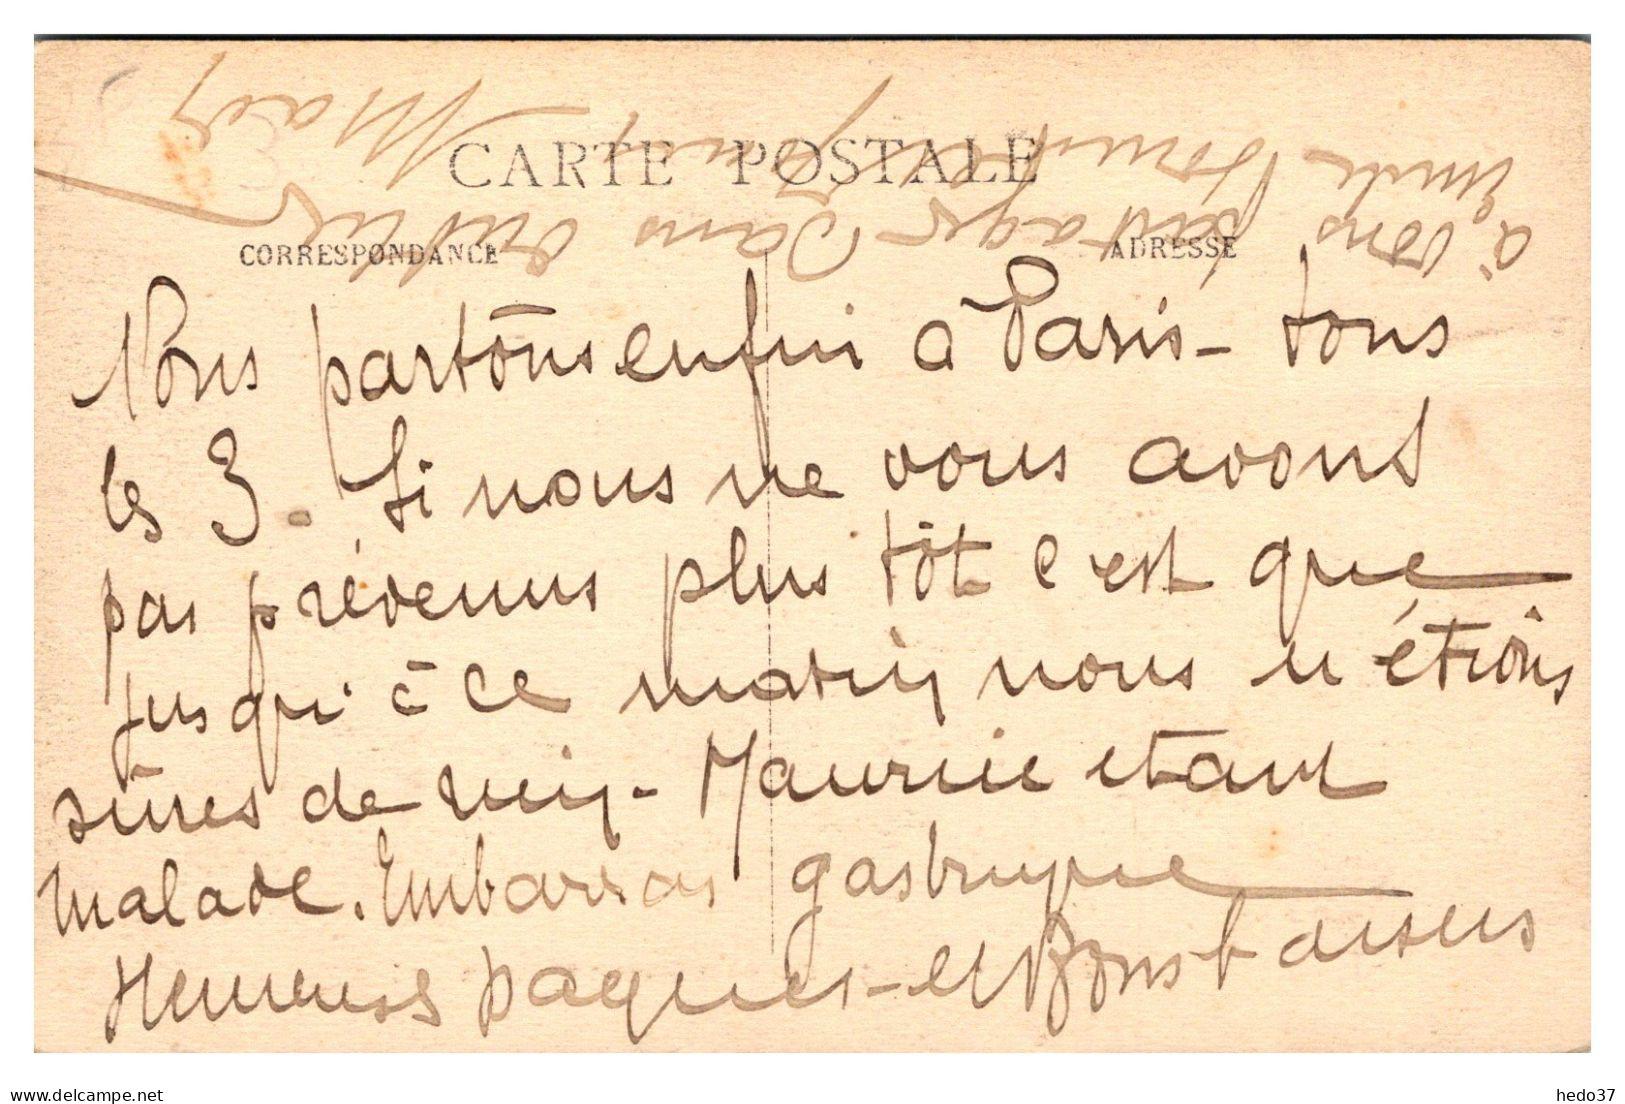 CARTE POSTALE
CORRESPONDANCE
ADRESSE
Nous partons enfin a Paris - tous
les 3. Si nous ne vous avons
pas prévenus plus tôt c'est que
jusqu'à ce matin nous n'étions
sûres de rien - Maurice etant
malade. Embarras gastrique
Heureuses paques - et Bons baisers
à vous partager Sans oublier
Emile
delcampe.net
hedo37